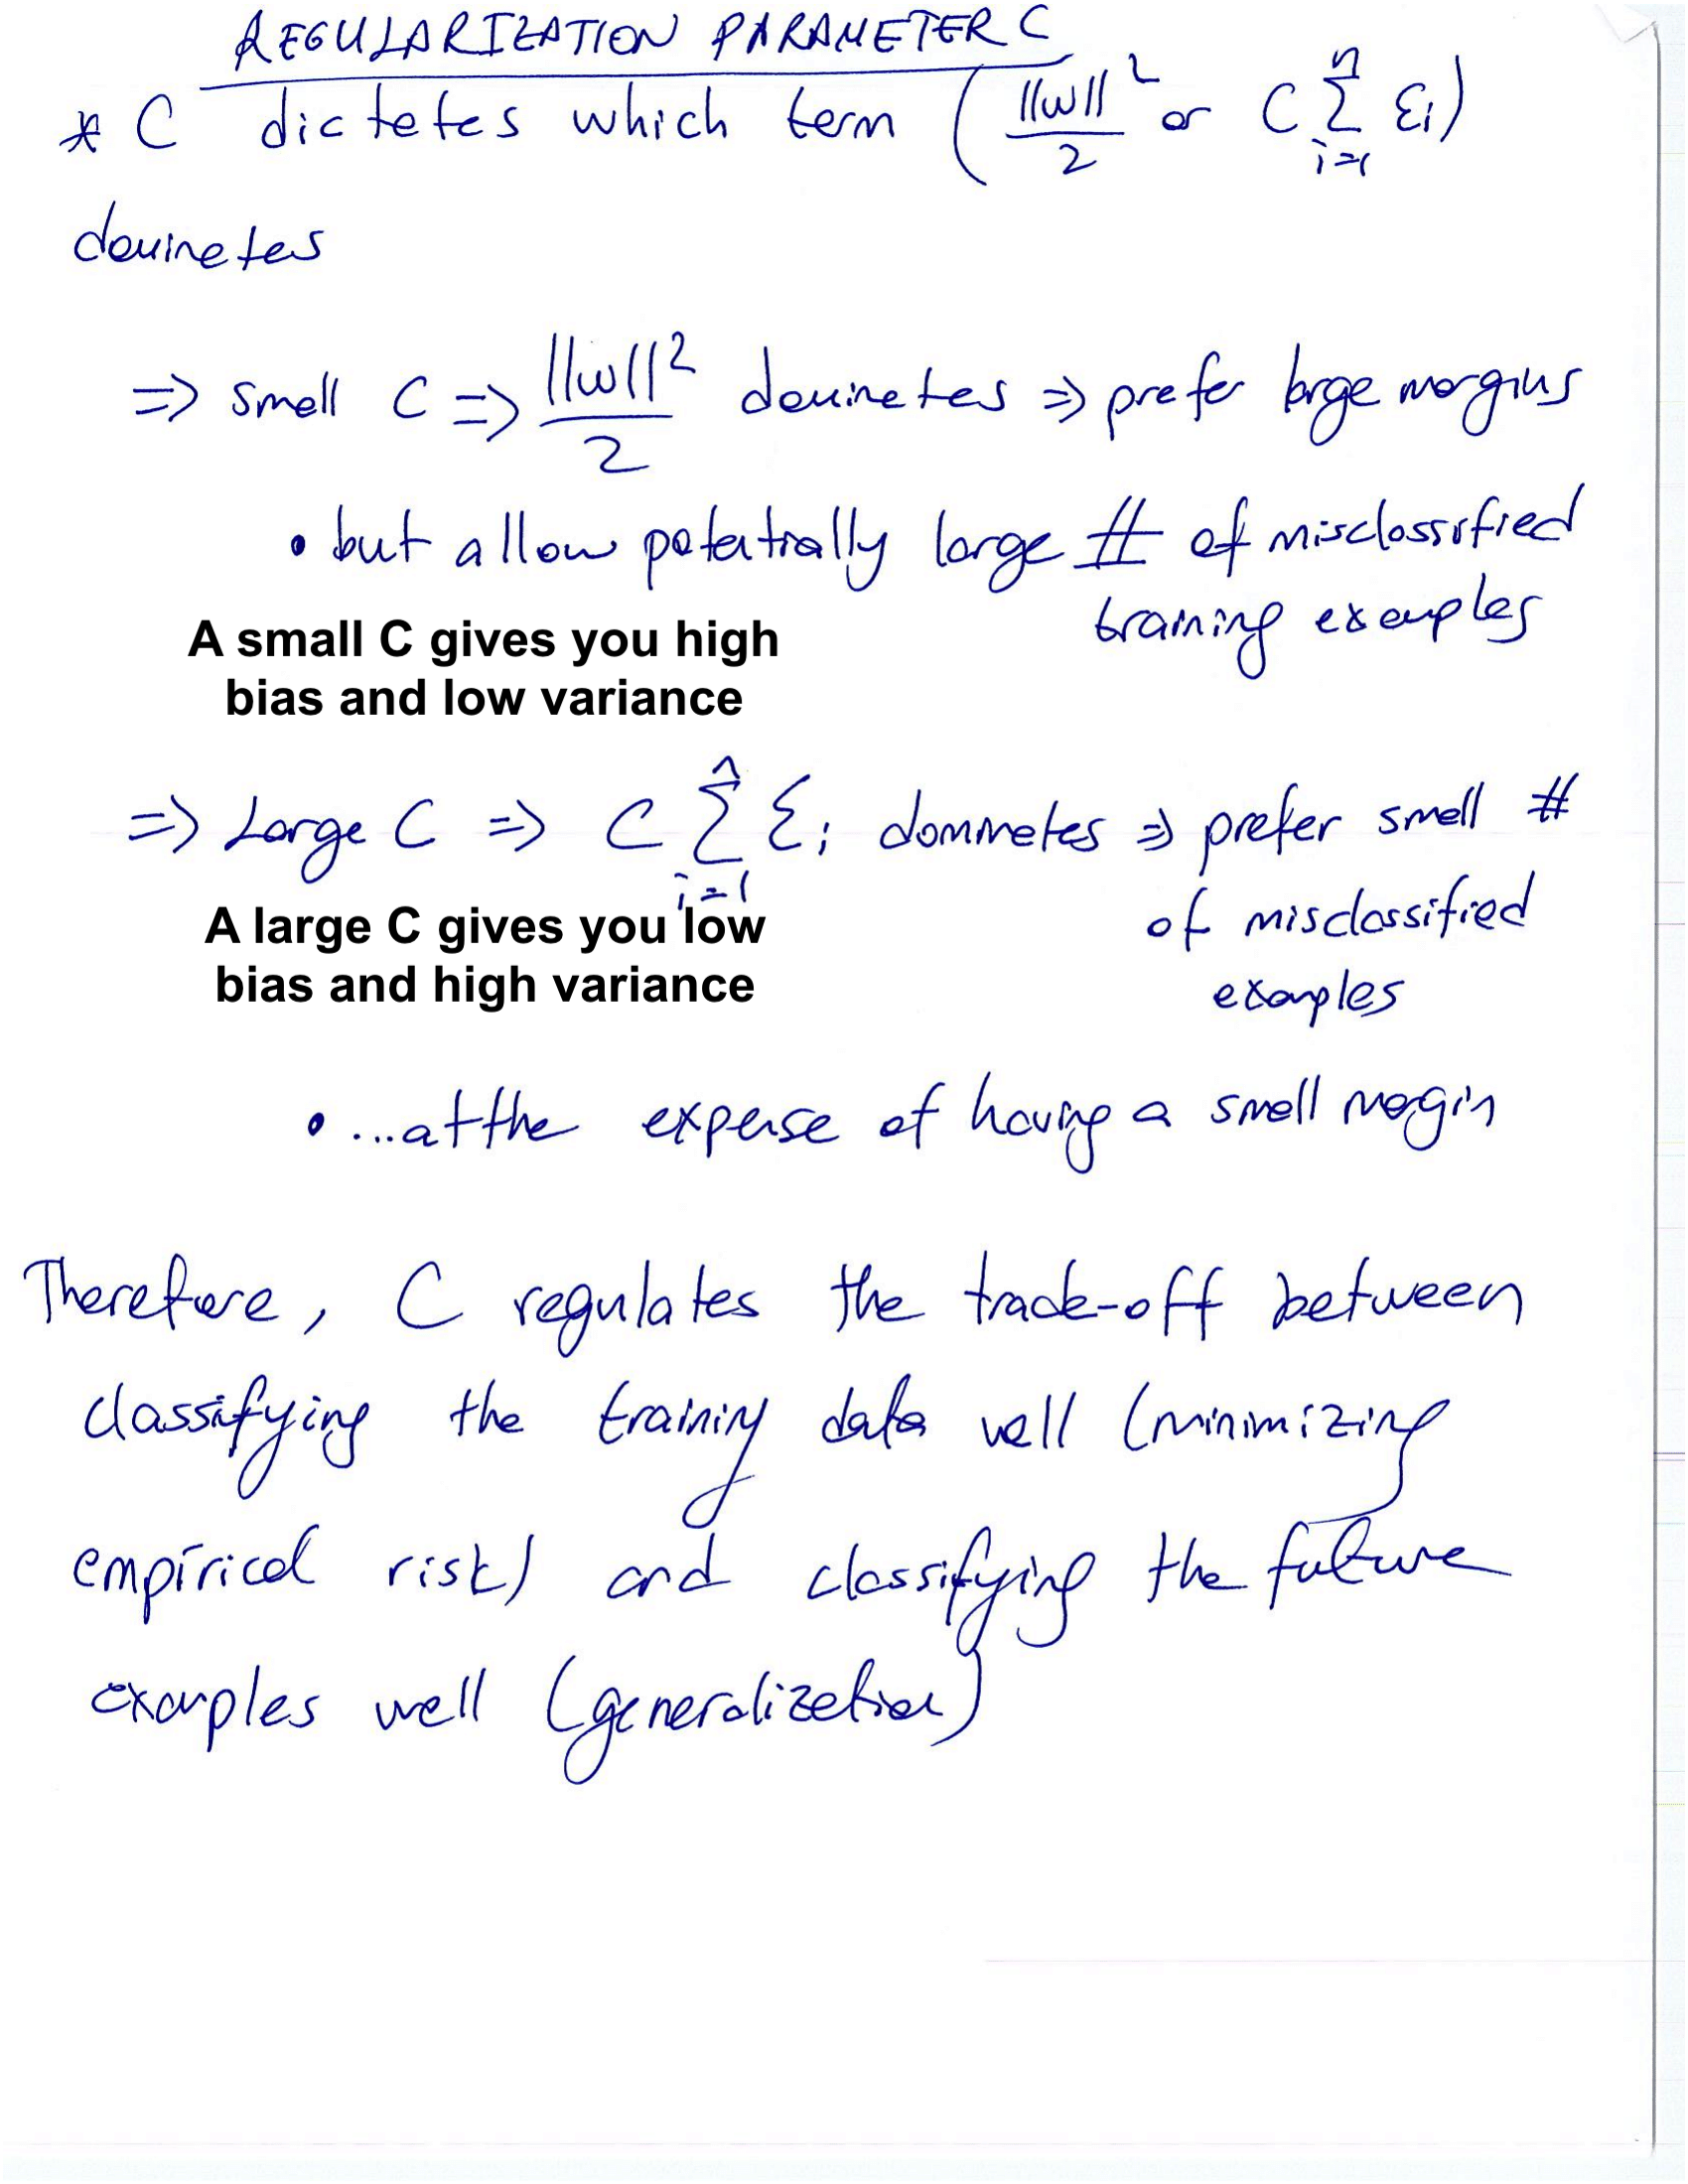 REGULARIZATION PARAMETER C
* C dictates which term ( ||w||²/2 or C Σ_{i=1}^{n} ξi )
dominates
=> small C => ||w||²/2 dominates => prefer large margins
• but allow potentially large # of misclassified
training examples
A small C gives you high
bias and low variance
=> Large C => C Σ_{i=1}^{n} ξi dominates => prefer small #
of misclassified
examples
A large C gives you low
bias and high variance
• ...at the expense of having a small margin
Therefore, C regulates the trade-off between
classifying the training data well (minimizing
empirical risk) and classifying the future
examples well (generalization)